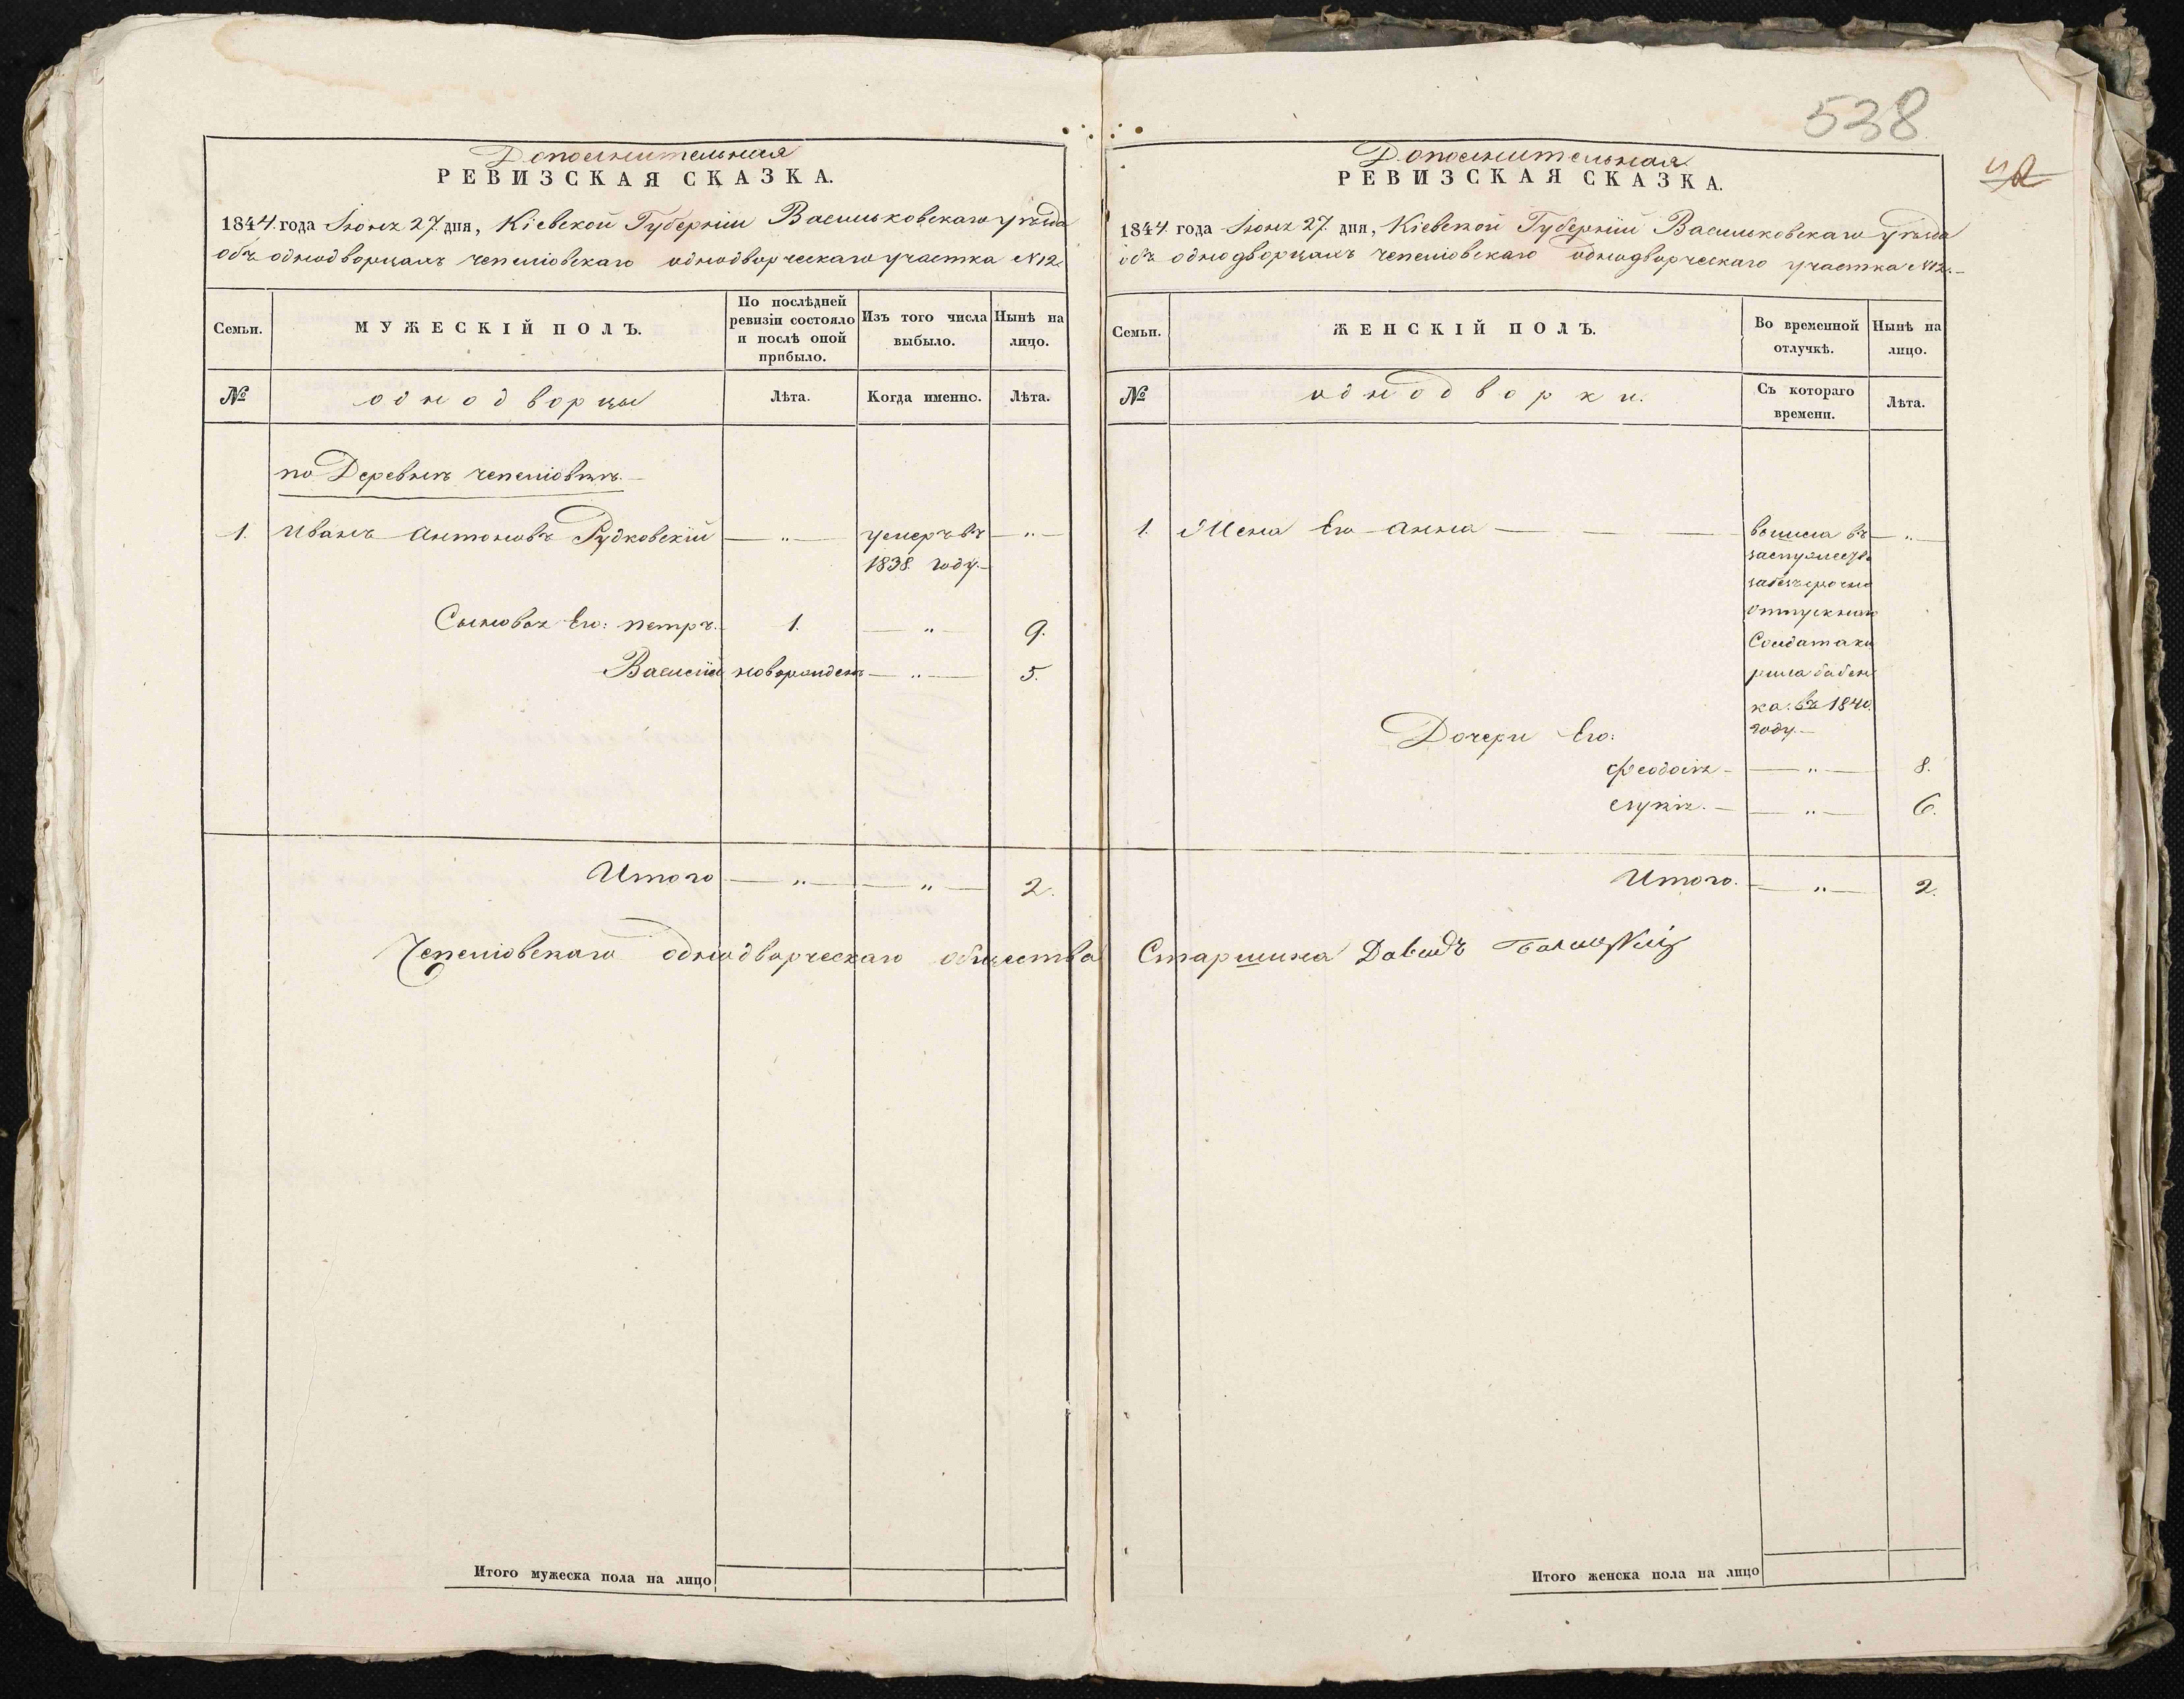 538
42
Дополнительная
РЕВИЗСКАЯ СКАЗКА.
1844 года Іюня 27 дня, Кіевской Губерніи Васильковскаго уѣзда
объ однодворцахъ чепеліовскаго однодворческаго участка №12.
Семьи.
МУЖЕСКІЙ ПОЛЪ.
По послѣдней
ревизіи состояло
и послѣ оной
прибыло.
Изъ того числа
выбыло.
Нынѣ на
лицо.
№
однодворцы
Лѣта.
Когда именно.
Лѣта.
по Деревнѣ чепеліовкѣ.
1. Иванъ Антоновъ Рудковскій — " — умеръ въ — " —
1838 году.
Сыновья Его: петръ. 1. — " — 9.
Василій новорожденъ — " — 5.
Итого — " — — " — 2.
Чепеліовскаго однодворческаго общества
Итого мужеска пола на лицо
Дополнительная
РЕВИЗСКАЯ СКАЗКА.
1844 года Іюня 27 дня, Кіевской Губерніи Васильковскаго уѣзда
объ однодворцахъ чепеліовскаго однодворческаго участка №12.
Семьи.
ЖЕНСКІЙ ПОЛЪ.
Во временной
отлучкѣ.
Нынѣ на
лицо.
№
однодворки.
Съ котораго
времени.
Лѣта.
1. Жена Его Анна — вышла въ — " —
замужество
за безсрочно
отпускнаго
Солдата ки
рила бабен
ка въ 1840
году.
Дочери Его:
феодосія — " — 8.
— " — 6.
Итого. — " — 2.
Старшина Давидъ
Итого женска пола на лицо